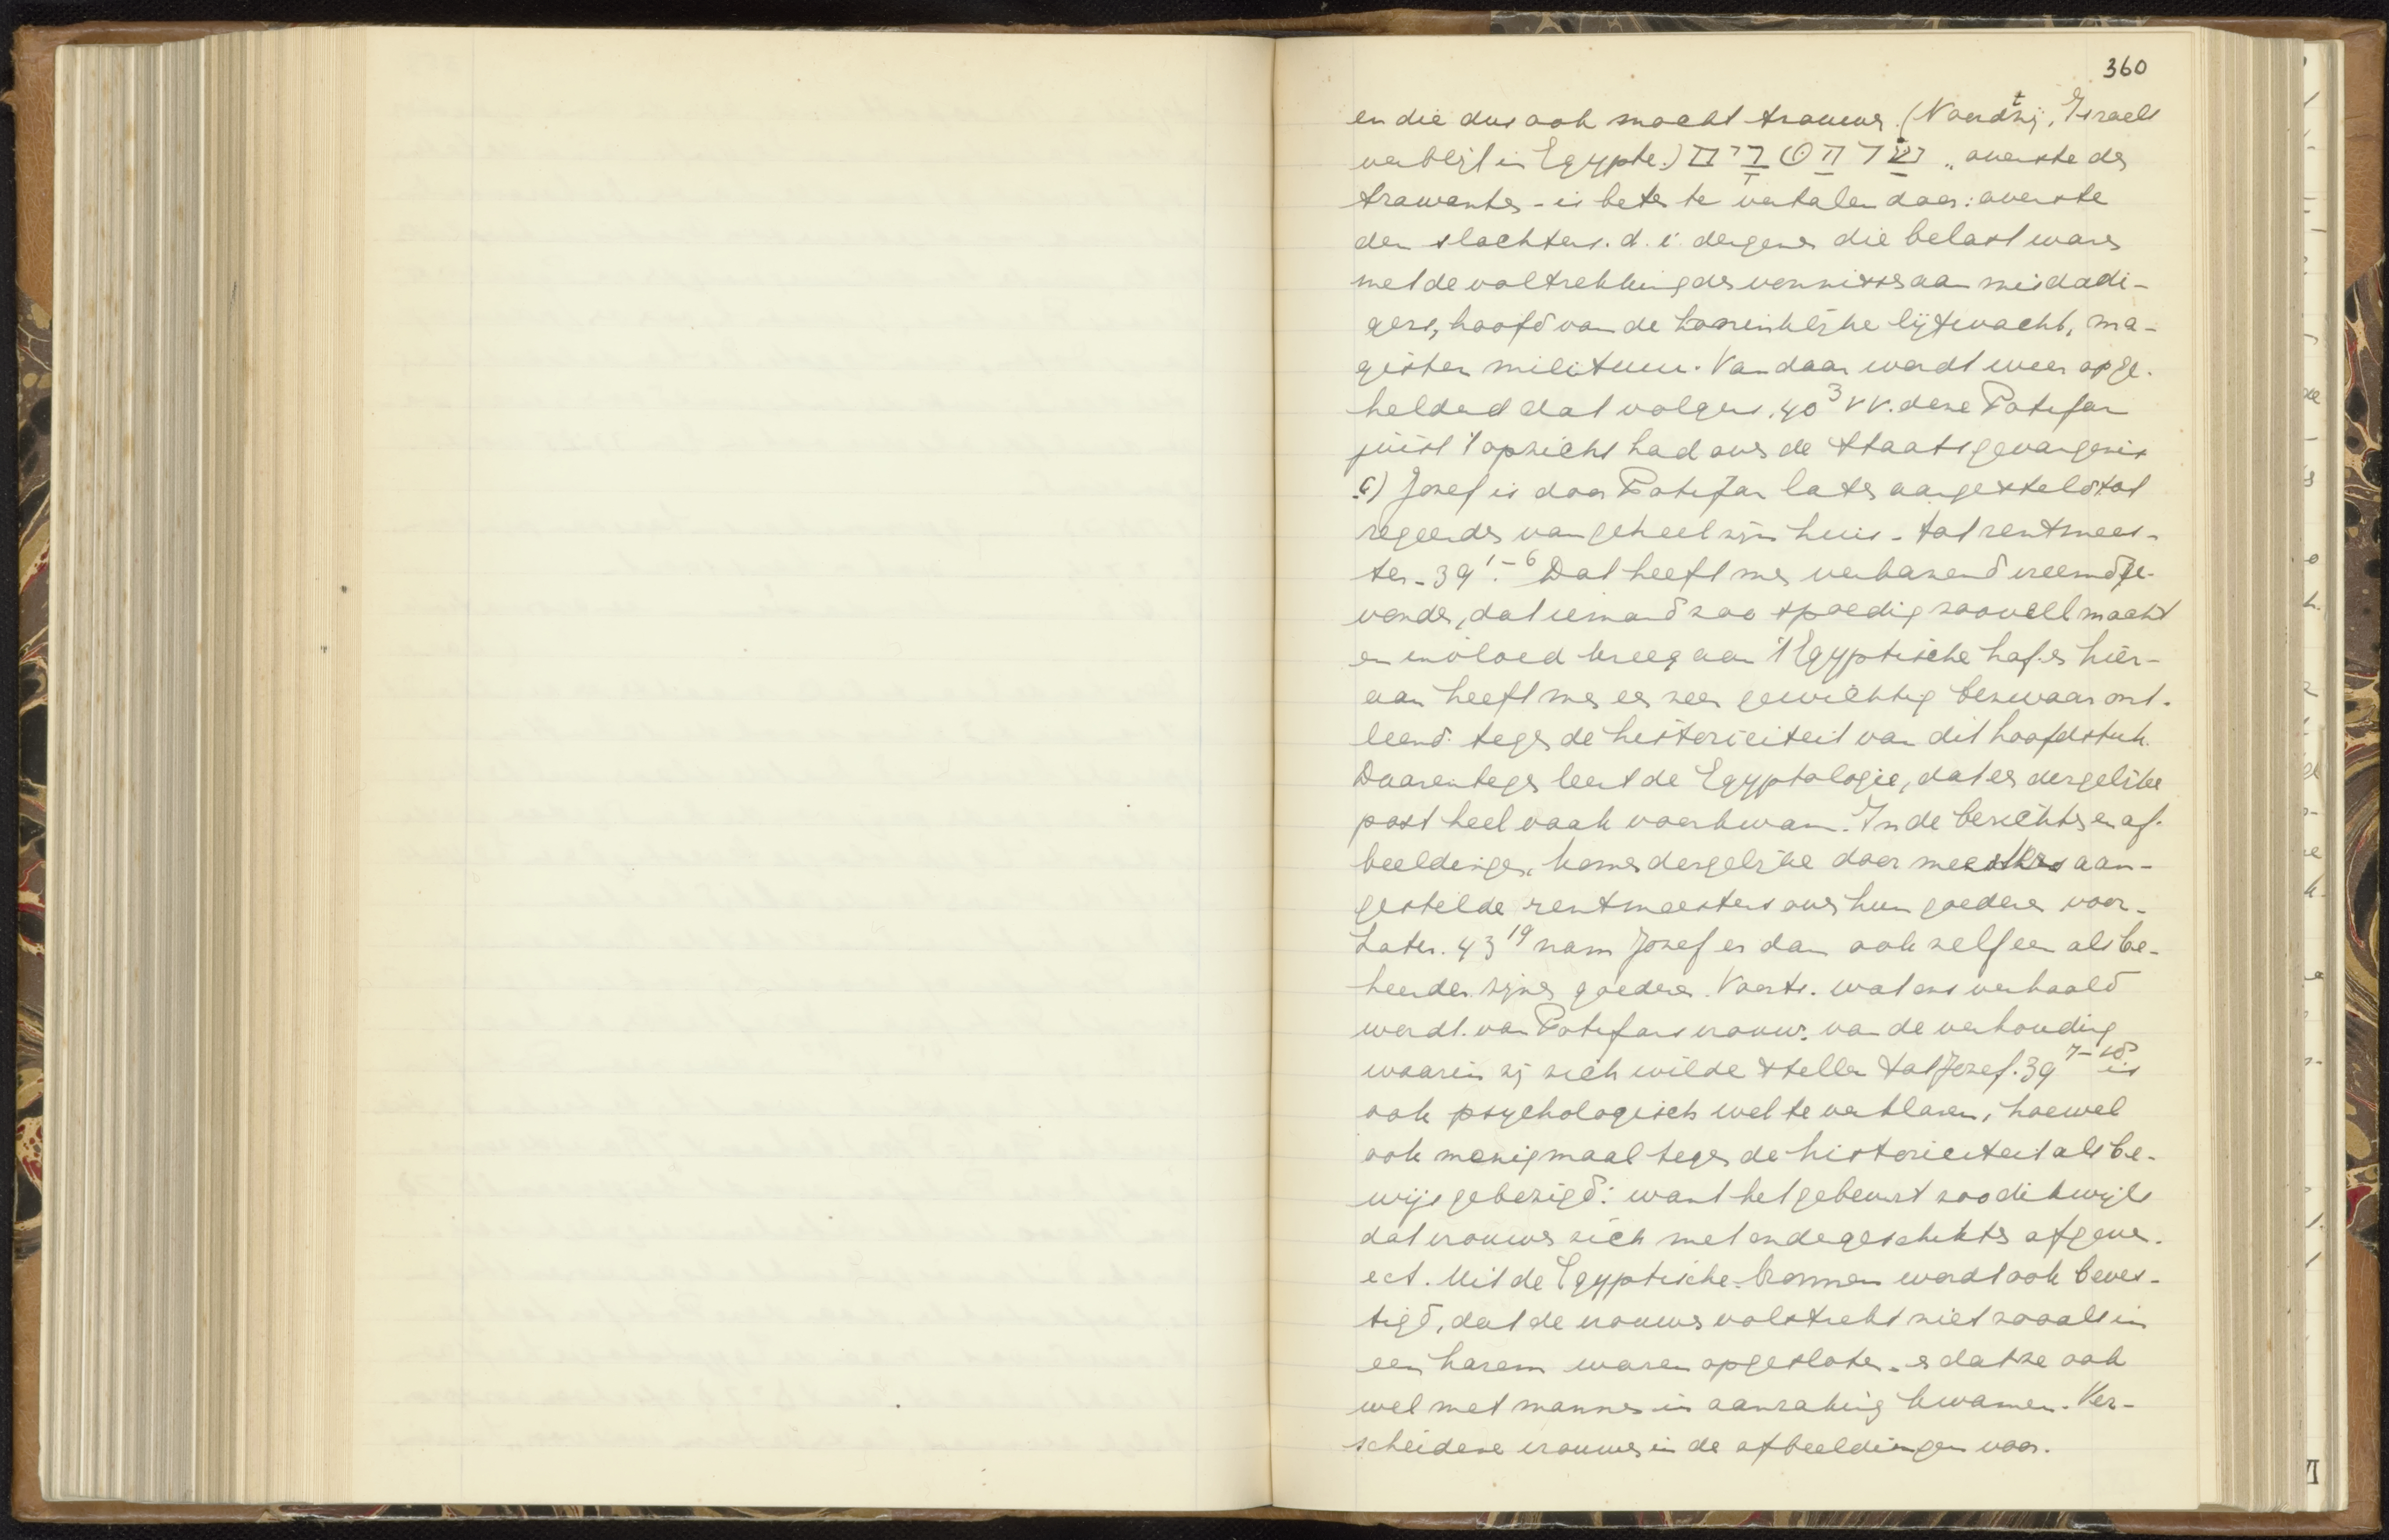 360
en die dus ook macht trouwen. (Noordtzij, Israels
verblijf in Egypte.) שַׂר הַטַּבָּחִים „overste der
trawanten - is beter te vertalen door: overste
der slachters. d. i. dergenen die belast waren
met de voltrekking der vonnissen aan misdadi-
gers, hoofd van de koninklijke lijfwacht, ma-
gister militum. Van daar wordt weer opge-
helderd dat volgens. 40 3 vv. deze Potifar
juist 't opzicht had over de staatsgevangenis
c) Jozef is door Potifar later aangesteld tot
regeerder van geheel zijn huis - tot rentmees-
ter - 39 1-6. Dat heeft men verbazend vreemd ge-
vonden, dat iemand zoo spoedig zooveel macht
en invloed kreeg aan 't Egyptische hof. en hier-
aan heeft men een zeer gewichtig bezwaar ont-
leend tegen de historiciteit van dit hoofdstuk.
Daarentegen leert de Egyptologie, dat een dergelijke
post heel vaak voorkwam. In de berichten en af-
beeldingen, komen dergelijke door meesters aan-
gestelde rentmeesters over hun goederen voor.
Later. 43 19 nam Jozef er dan ook zelf een als be-
heerder zijner goederen. Voorts. wat ons verhaald
wordt. van Potifars vrouw. van de verhouding
waarin zij zich wilde stellen tot Jozef. 39 7-18 is
ook psychologisch wel te verklaren, hoewel
ook menigmaal tegen de historiciteit als be-
wijs gebezigd: want het gebeurt zoo dikwijls
dat vrouwen zich met ondergeschikten afgeven.
ect. Uit de Egyptische bronnen wordt ook beves-
tigd, dat de vrouwen volstrekt niet zooals in
een harem waren opgesloten - en dat ze ook
wel met mannen in aanraking kwamen. Ver-
scheidene vrouwen in de afbeeldingen voor.